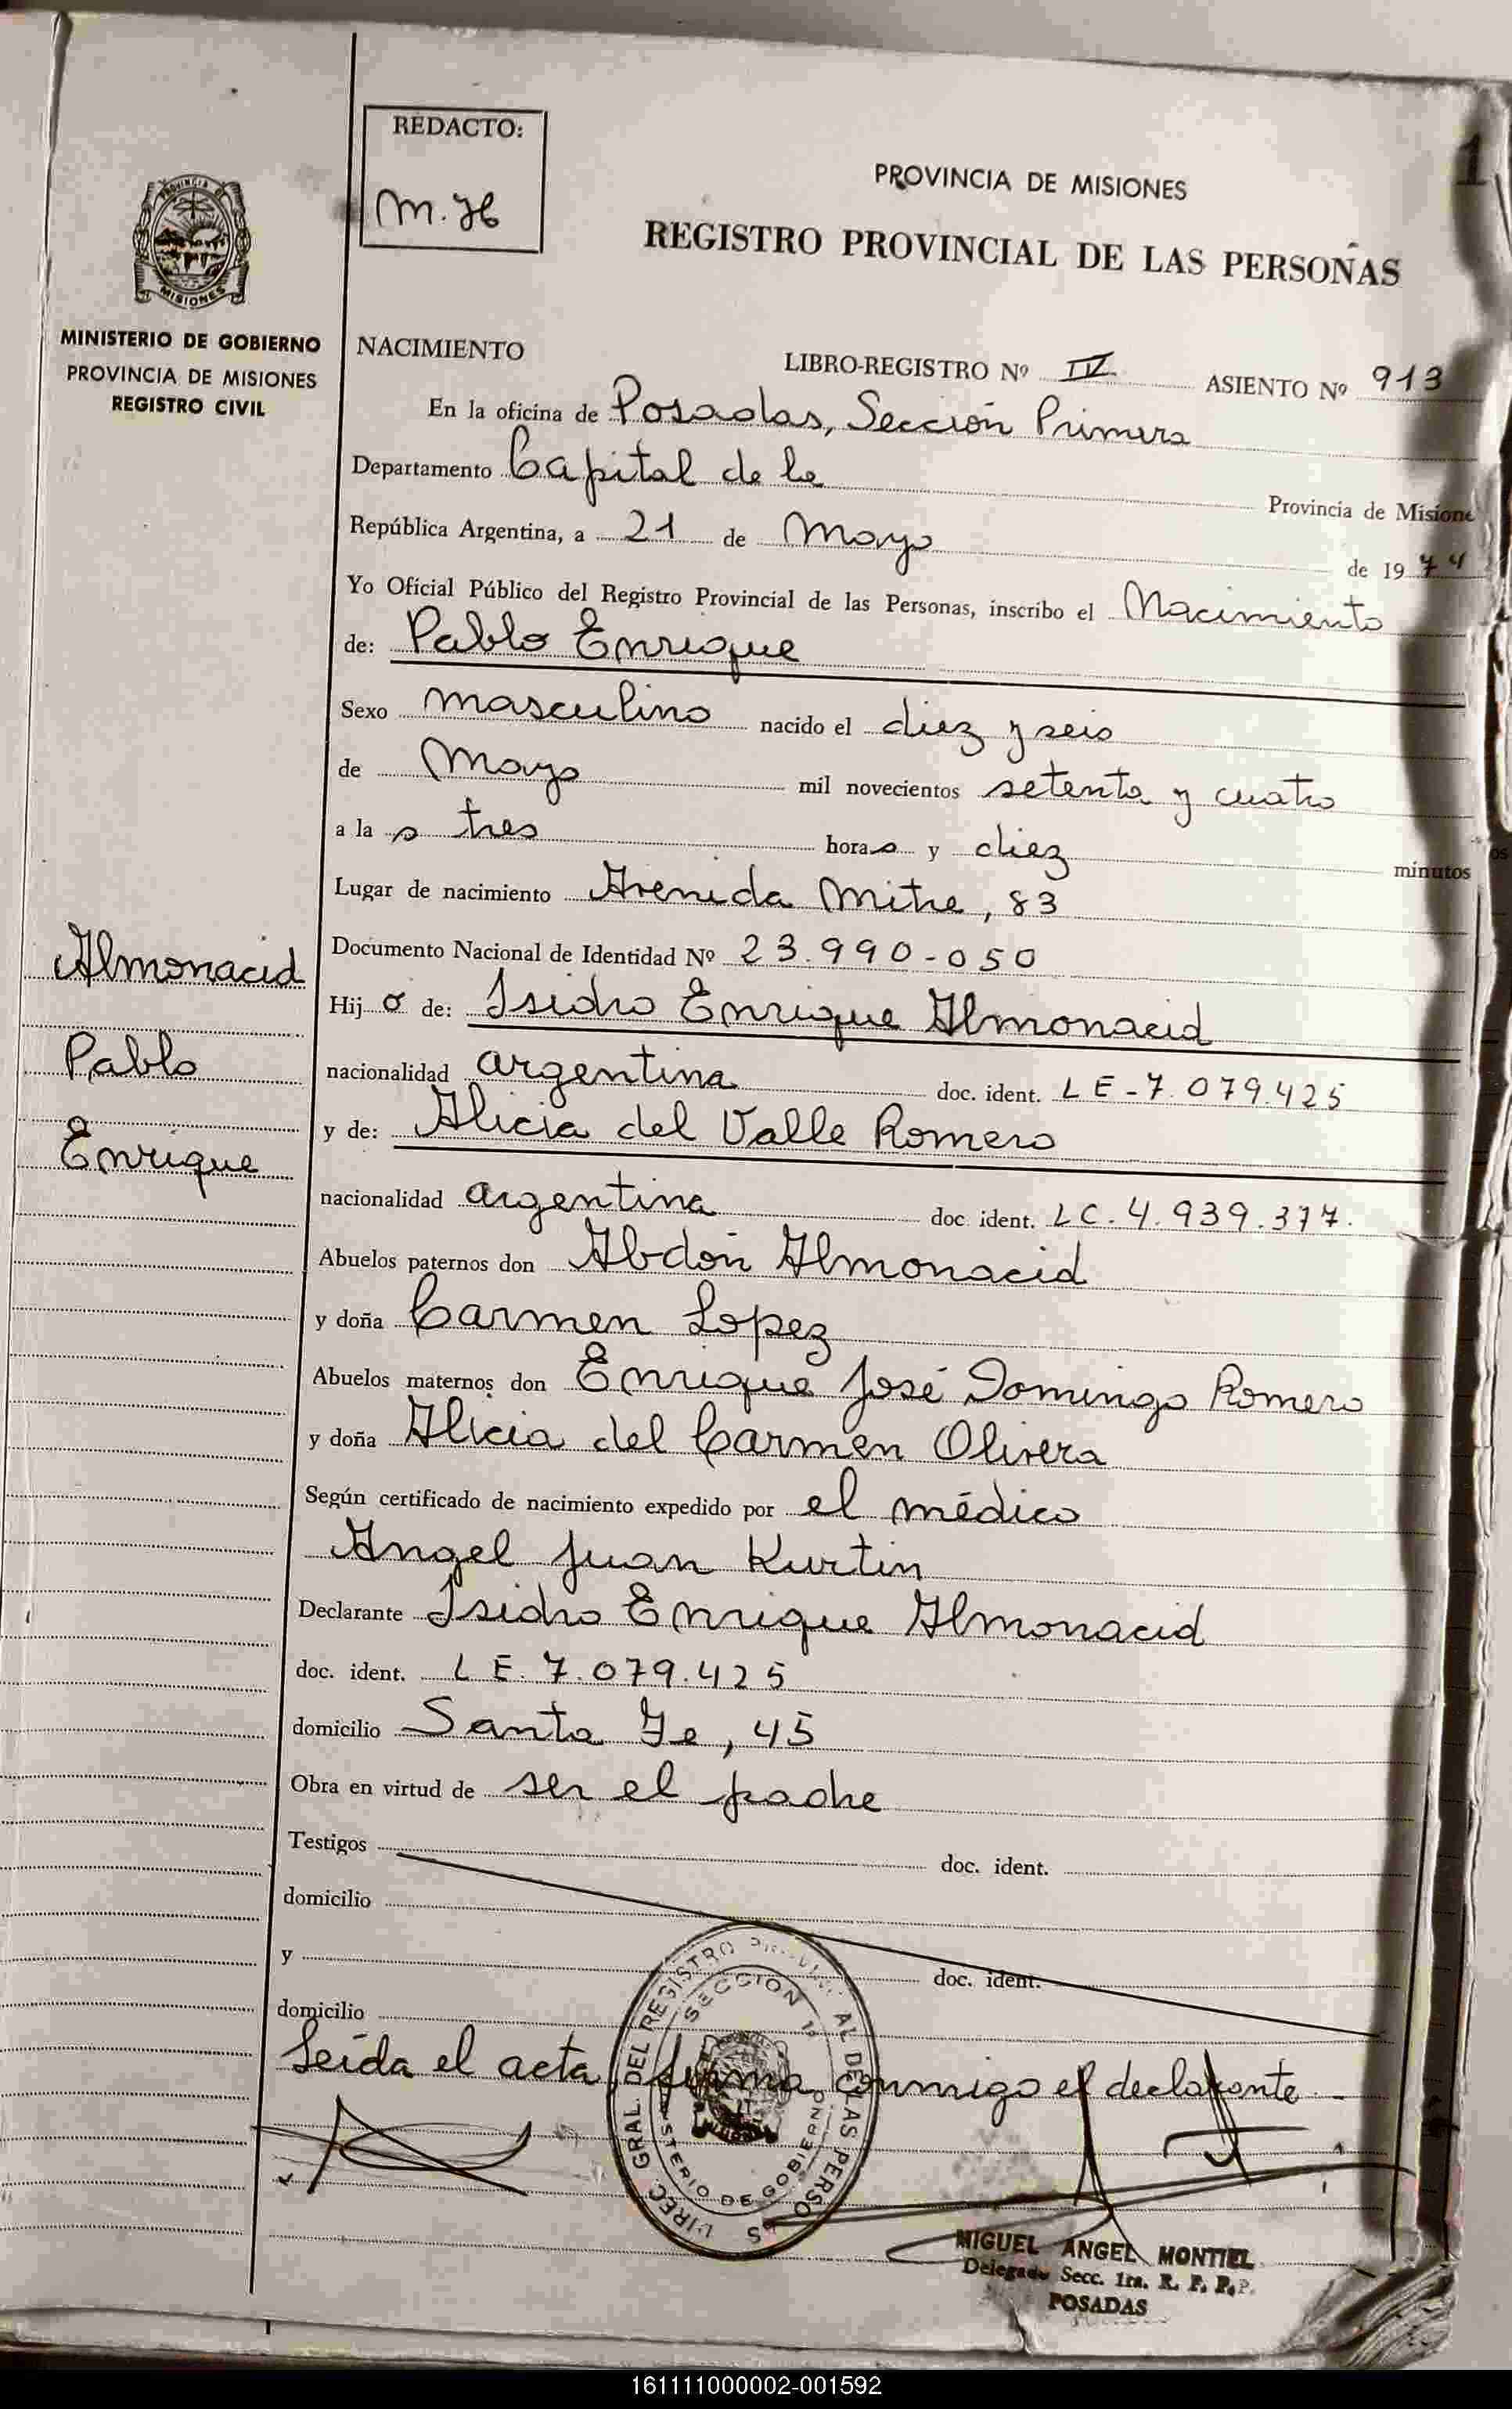 REDACTO:
M. H
1
PROVINCIA DE MISIONES
REGISTRO PROVINCIAL DE LAS PERSONAS
PROVINCIA DE
MISIONES
MINISTERIO DE GOBIERNO
PROVINCIA DE MISIONES
REGISTRO CIVIL
NACIMIENTO
LIBRO-REGISTRO Nº IV ASIENTO Nº 913
En la oficina de Posadas, Sección Primera
Departamento Capital de la Provincia de Misione
República Argentina, a 21 de Mayo de 1974
Yo Oficial Público del Registro Provincial de las Personas, inscribo el Nacimiento
de: Pablo Enrique
Sexo masculino nacido el diez y seis
de Mayo mil novecientos setenta y cuatro
a las tres horas y diez minutos
Lugar de nacimiento Avenida Mitre, 83
Documento Nacional de Identidad Nº 23.990-050
Hijo de: Isidro Enrique Almonacid
nacionalidad argentina doc. ident. LE-7.079.425
y de: Alicia del Valle Romero
nacionalidad argentina doc. ident. LC.4.939.377.
Abuelos paternos don Abdón Almonacid
y doña Carmen Lopez
Abuelos maternos don Enrique José Domingo Romero
y doña Alicia del Carmen Olivera
Según certificado de nacimiento expedido por el médico
Angel Juan Kurtin
Declarante Isidro Enrique Almonacid
doc. ident. LE.7.079.425
domicilio Santa Fe, 45
Obra en virtud de ser el padre
Testigos doc. ident.
domicilio
y doc. ident.
domicilio
Leída el acta, firma conmigo el declarante.
Almonacid
Pablo
Enrique
DIREC. GRAL. DEL REGISTRO PROVINCIAL DE LAS PERSONAS
SECCION 1ª
MINISTERIO DE GOBIERNO
MIGUEL ANGEL MONTIEL
Delegado Secc. 1ra. R. P. P.
POSADAS
161111000002-001592